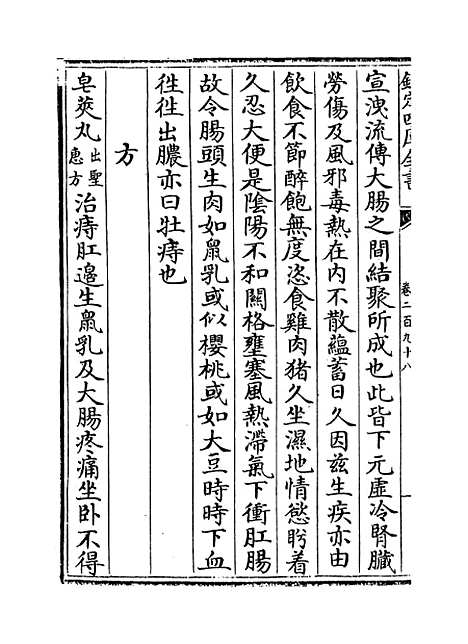 欽定四庫全書
卷二百九十八
宣洩流傳大腸之間結聚所成也此皆下元虚冷腎臟
勞傷及風邪毒熱在内不散藴蓄日久因兹生疾亦由
飲食不節醉飽無度恣食雞肉猪久坐濕地情慾眄着
久忍大便是陰陽不和關格壅塞風熱滯氣下衝肛腸
故令腸頭生肉如鼠乳或似櫻桃或如大豆時時下血
徃徃出膿亦曰牡痔也
方
皂莢丸出聖惠方治痔肛邉生鼠乳及大腸疼痛坐卧不得